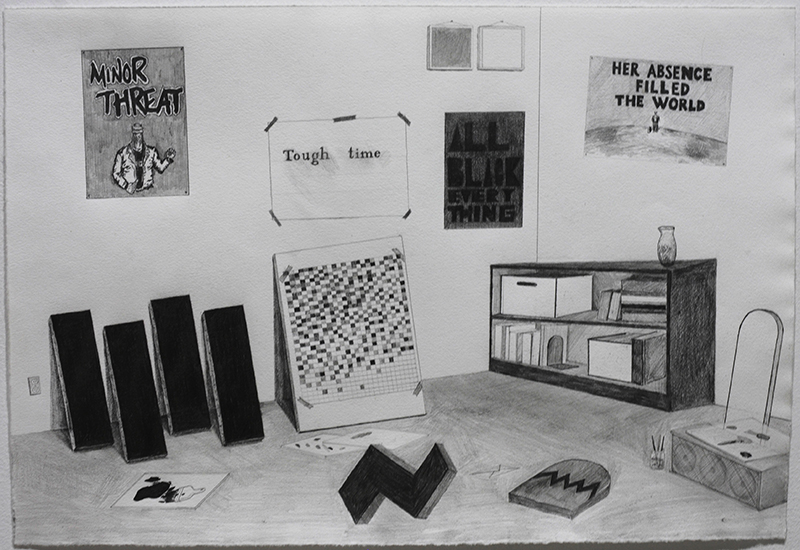 MINOR
THREAT
Tough time
ALL
BLACK
EVERY
THING
HER ABSENCE
FILLED
THE WORLD